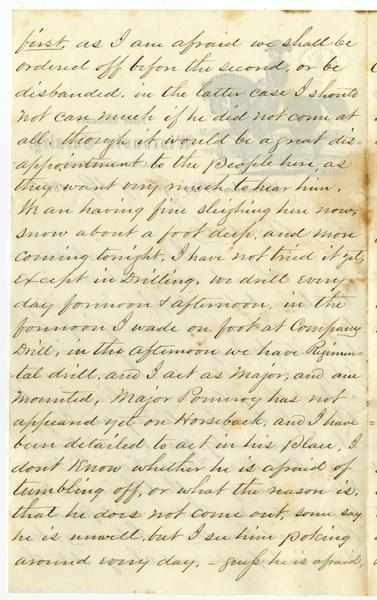 first, as I am afraid we shall be
ordered off before the second, or be
disbanded, in the latter case I should
not care much if he did not come at
all. though it would be a great dis-
appointment to the People here, as
they want very much to hear him.
We are having fine sleighing here now,
snow about a foot deep, and more
coming tonight, I have not tried it yet,
Except in Drilling. we drill every
day forenoon & afternoon, in the
forenoon I wade on foot at Company
Drill, in the afternoon we have Regimen-
-tal drill, and I act as Major, and am
mounted, Major Pomeroy has not
appeared yet on Horseback, and I have
been detailed to act in his Place, I
dont Know whether he is afraid of
tumbling off, or what the reason is,
that he does not come out, some say
he is unwell, but I see him poking
around every day. - guess he is afraid,